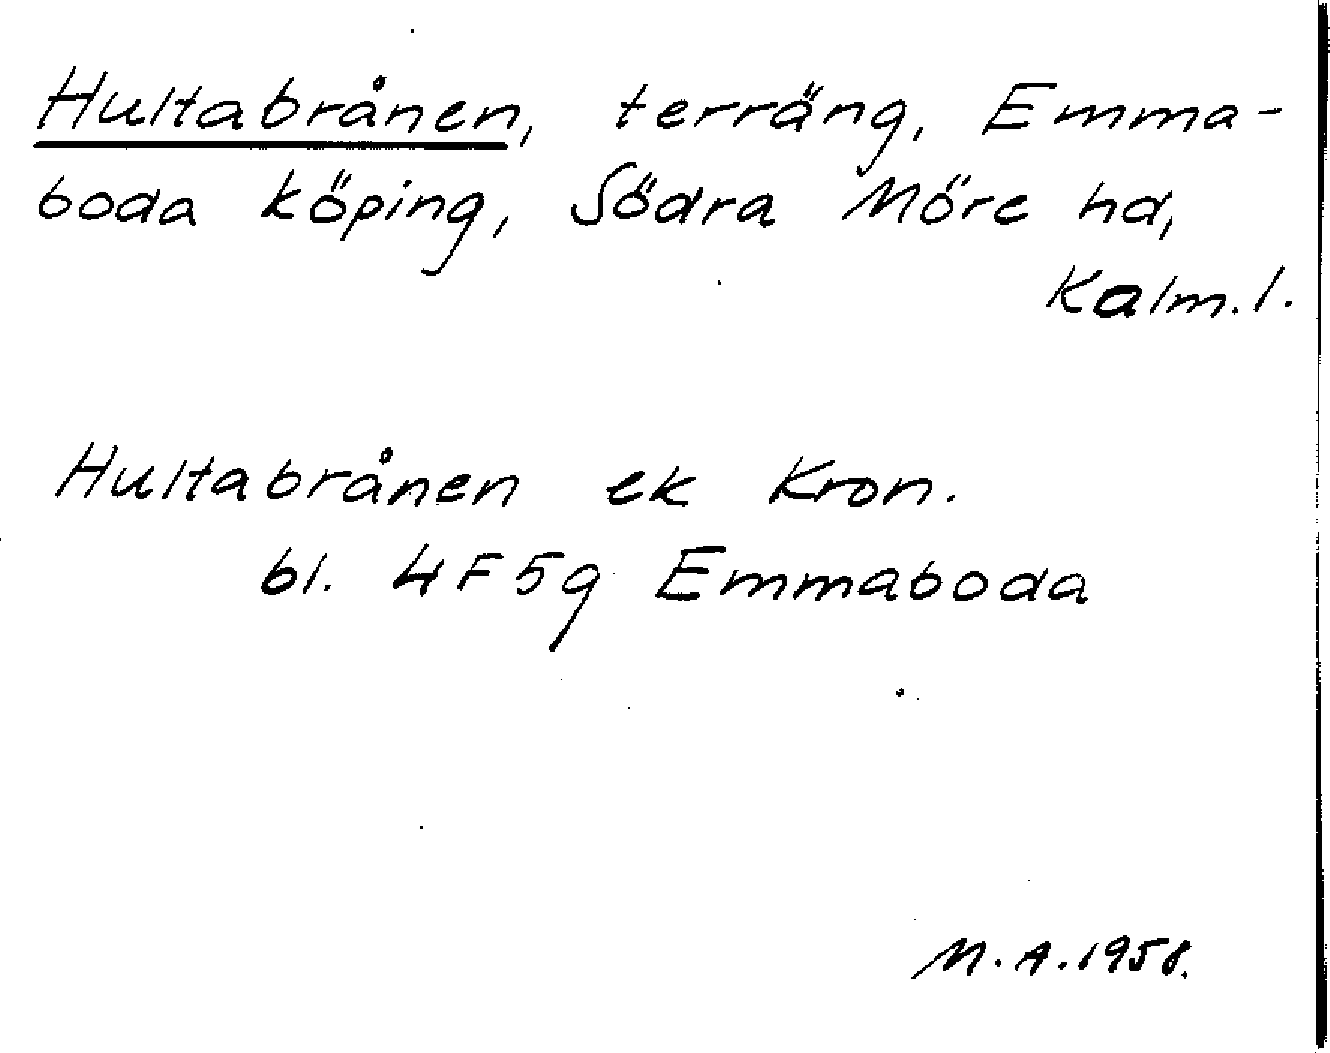 Hultabrånen, terräng, Emma-
boda köping, Södra Möre hd,
Kalm. l.
Hultabrånen ek Kron.
bl. 4F5g Emmaboda
M.A. 1958.